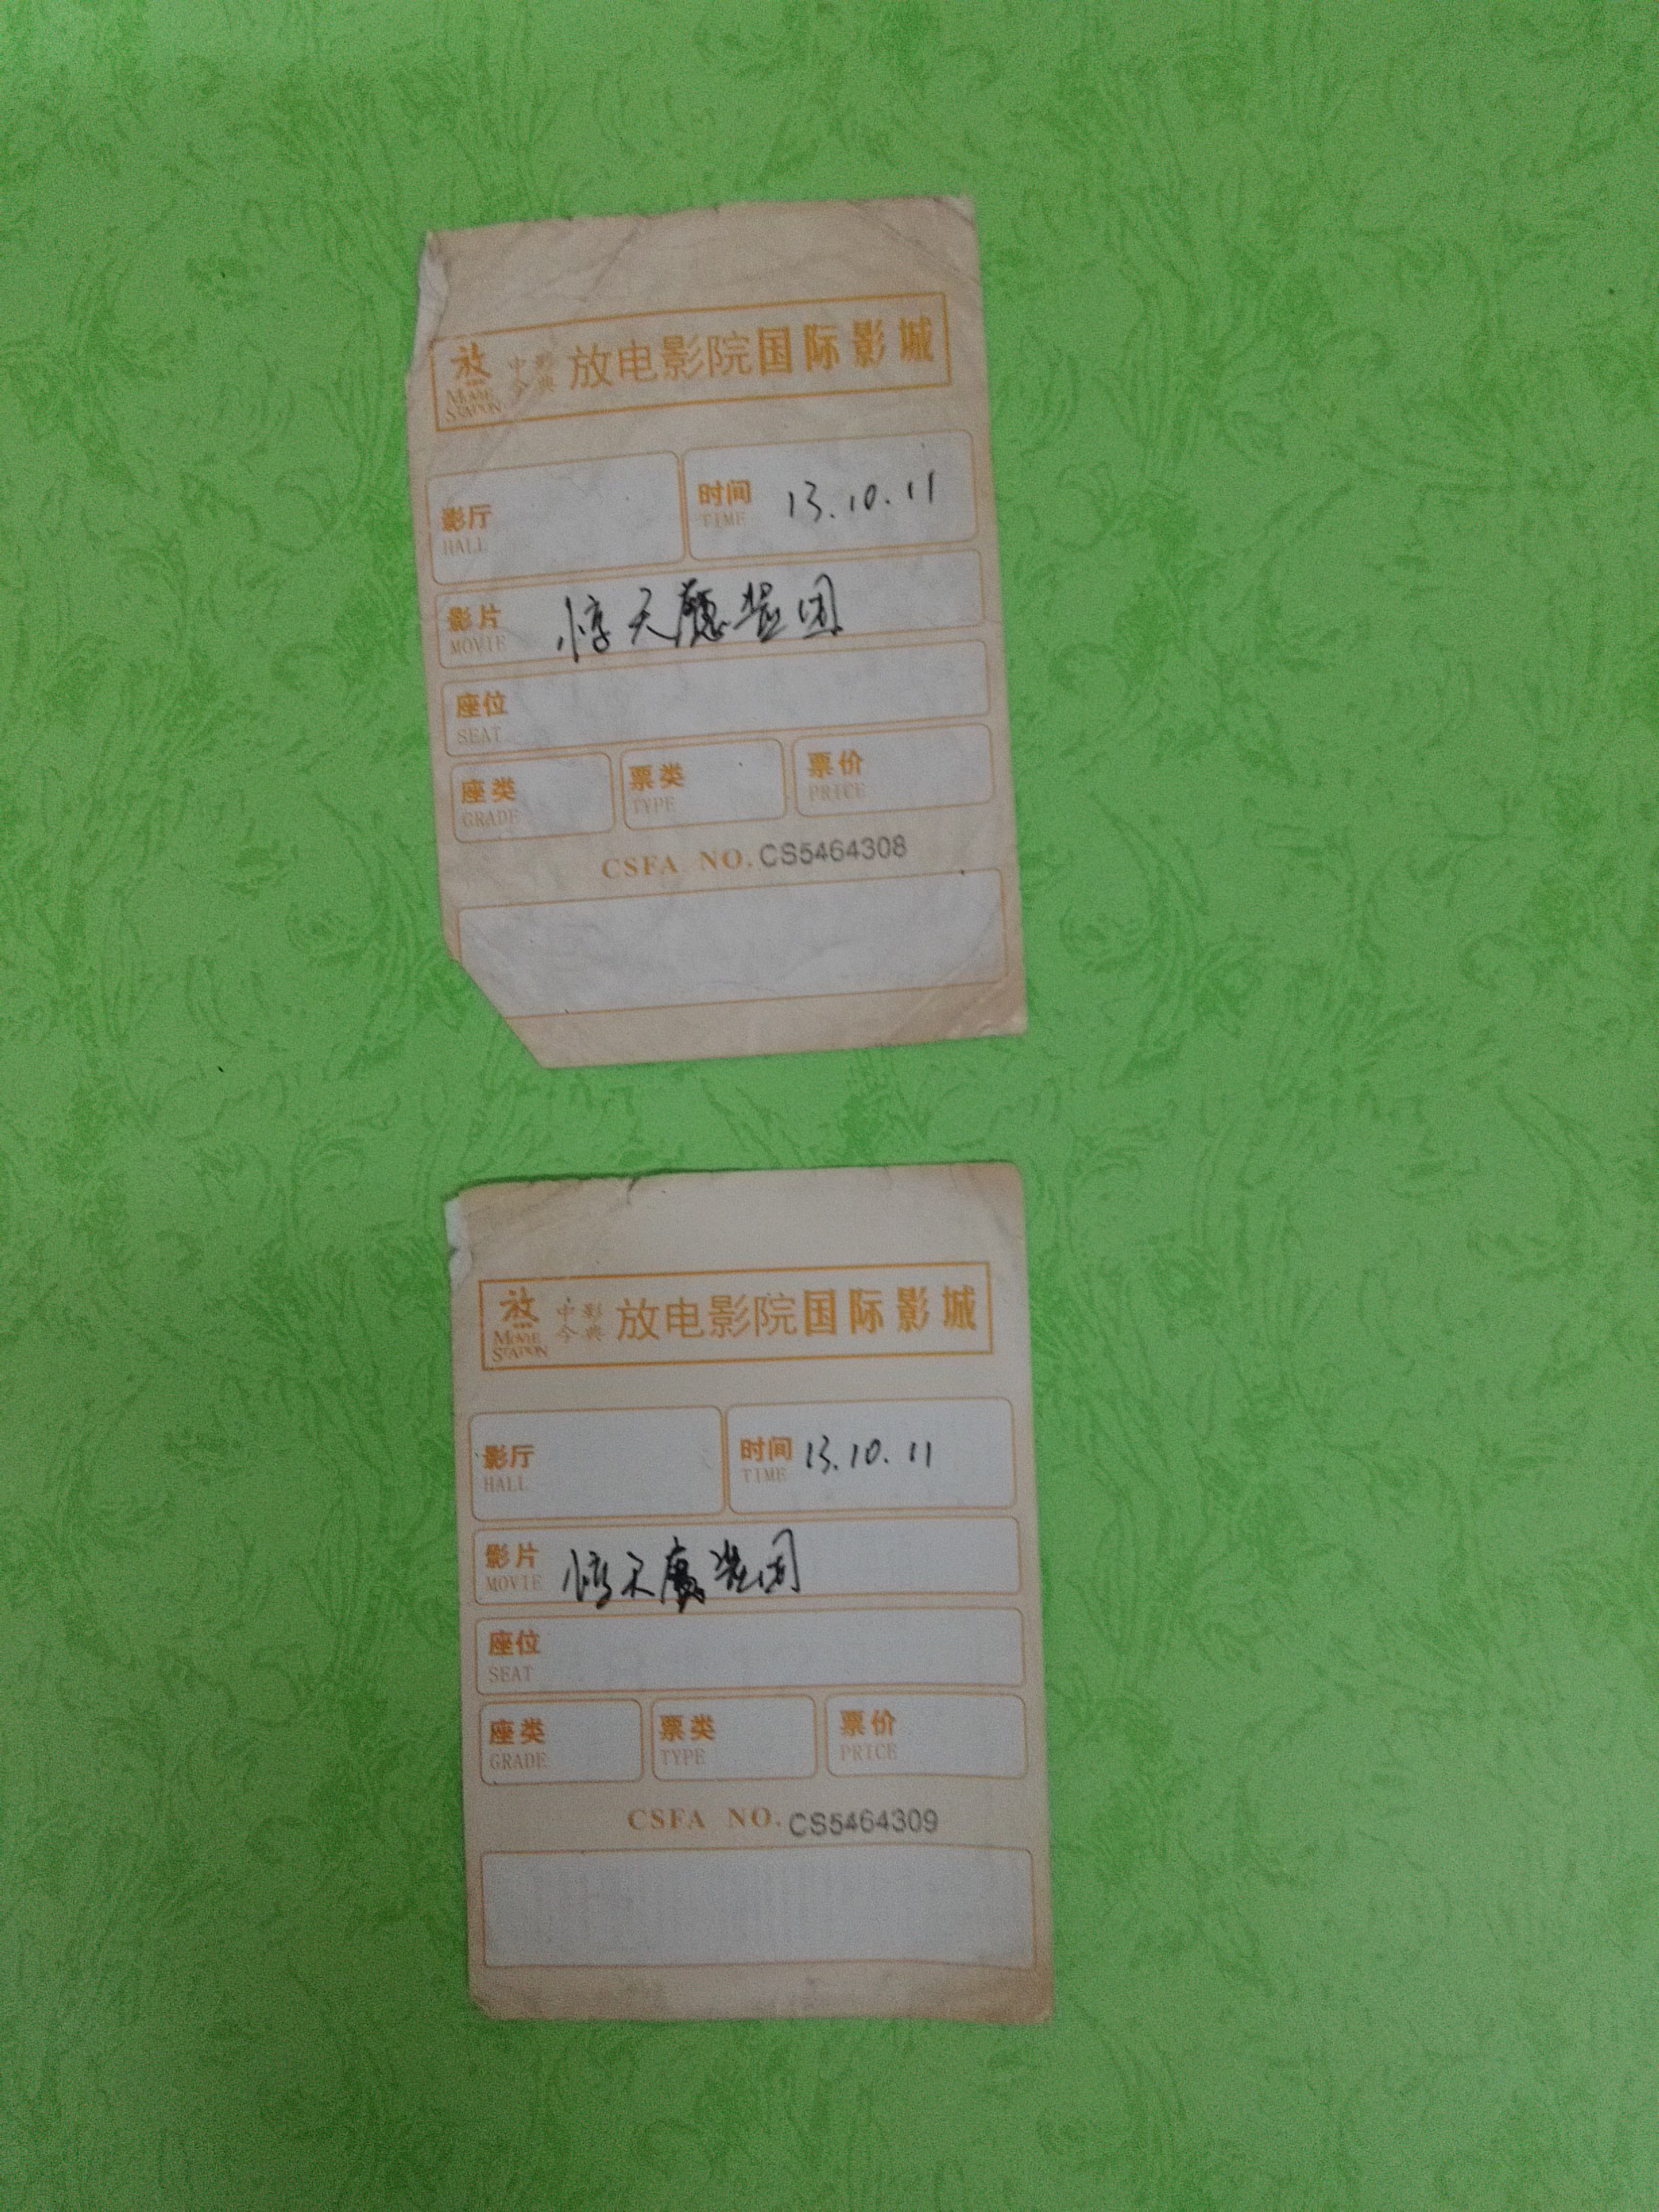 放 MOVIE STATION 中影今典 放电影院国际影城
影厅 HALL
时间 TIME 13.10.11
影片 MOVIE 惊天魔盗团
座位 SEAT
座类 GRADE
票类 TYPE
票价 PRICE
CSFA NO. CS5464308
放 MOVIE STATION 中影今典 放电影院国际影城
影厅 HALL
时间 TIME 13.10.11
影片 MOVIE 惊天魔盗团
座位 SEAT
座类 GRADE
票类 TYPE
票价 PRICE
CSFA NO. CS5464309